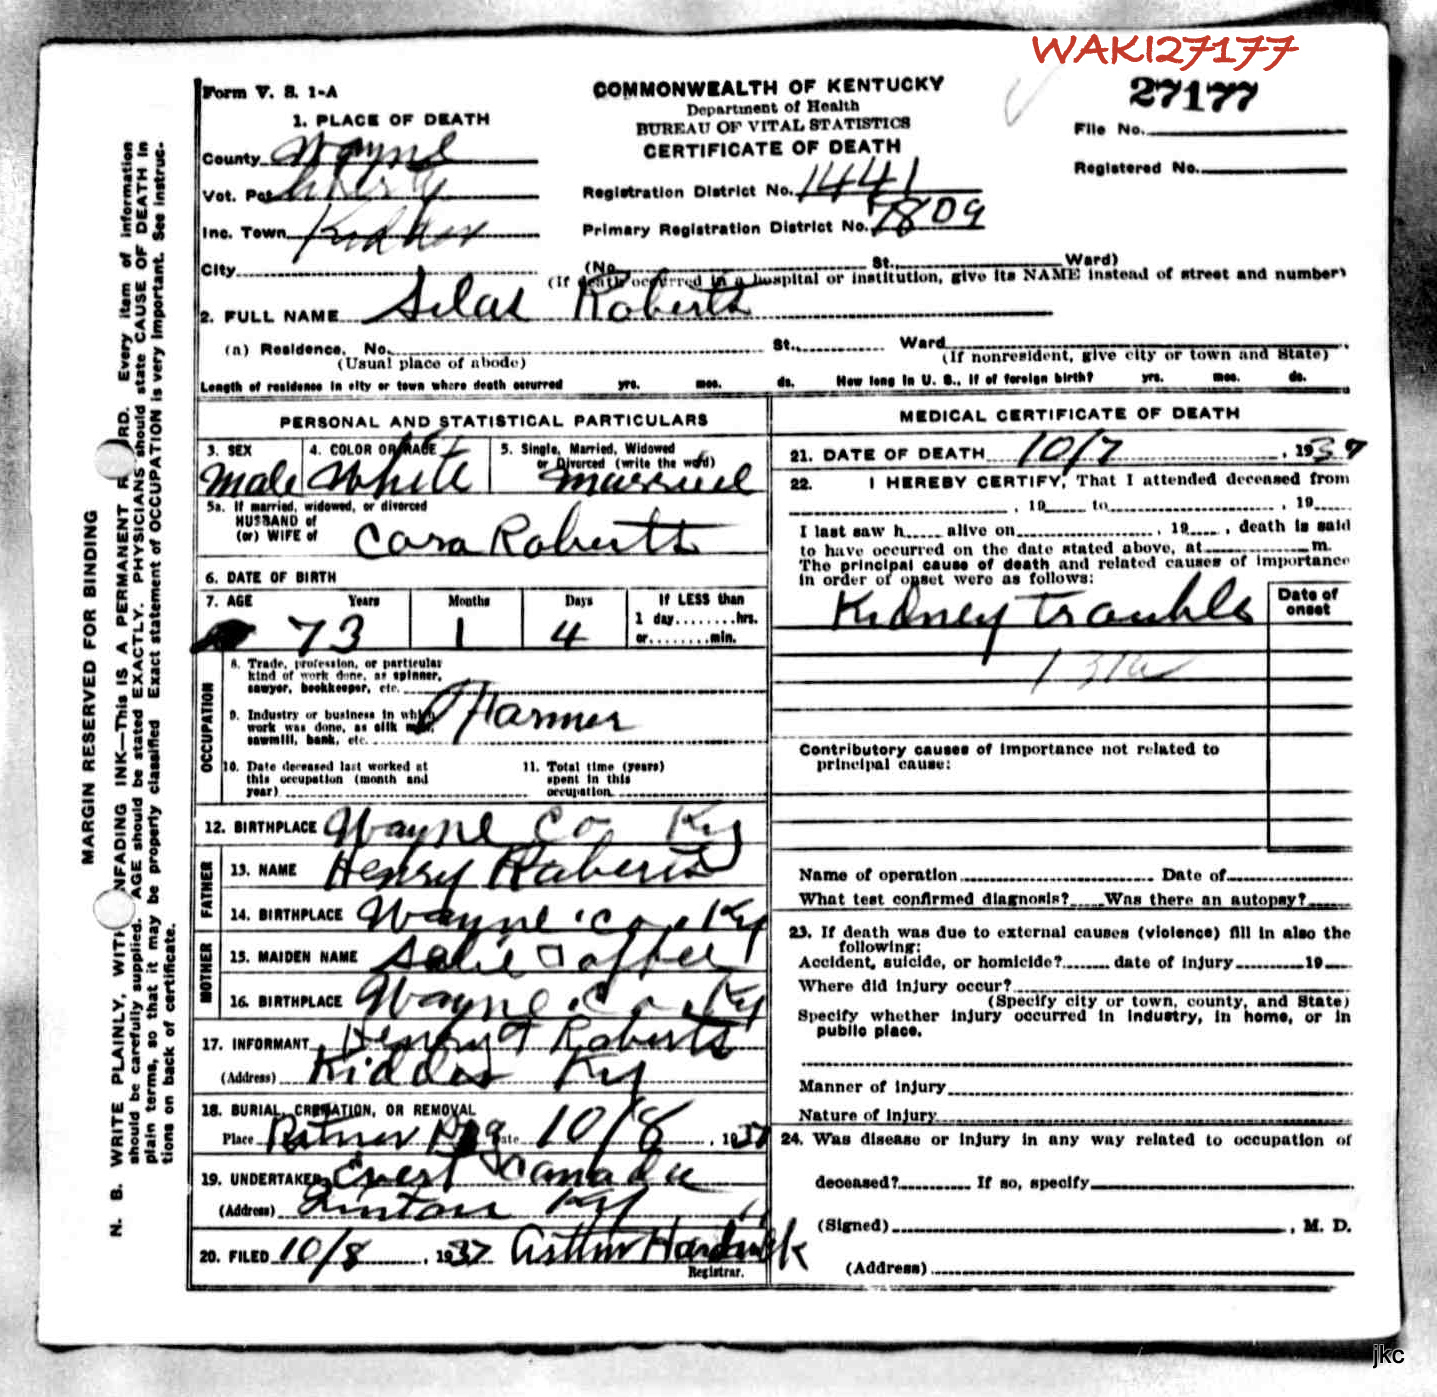 WAKI27177
Form V. S. 1-A
COMMONWEALTH OF KENTUCKY
Department of Health
BUREAU OF VITAL STATISTICS
CERTIFICATE OF DEATH
27177
File No.
Registered No.
1. PLACE OF DEATH
County Wayne
Vot. Pct
Inc. Town Kidder
City
Registration District No. 1441
Primary Registration District No. 7809
(No. St. Ward)
(If death occurred in a hospital or institution, give its NAME instead of street and number)
2. FULL NAME Silas Roberts
(a) Residence. No. St. Ward
(Usual place of abode) (If nonresident, give city or town and State)
Length of residence in city or town where death occurred yrs. mos. ds. How long in U. S., if of foreign birth? yrs. mos. ds.
PERSONAL AND STATISTICAL PARTICULARS
3. SEX 4. COLOR OR RACE 5. Single, Married, Widowed
or Divorced (write the word)
Male White Married
5a. If married, widowed, or divorced
HUSBAND of
(or) WIFE of Cora Roberts
6. DATE OF BIRTH
7. AGE Years Months Days If LESS than
1 day........hrs.
or........min.
73 1 4
OCCUPATION
8. Trade, profession, or particular
kind of work done, as spinner,
sawyer, bookkeeper, etc.
9. Industry or business in which
work was done, as silk mill,
sawmill, bank, etc.
Farmer
10. Date deceased last worked at
this occupation (month and
year)
11. Total time (years)
spent in this
occupation
12. BIRTHPLACE Wayne Co Ky
FATHER
13. NAME Henry Roberts
14. BIRTHPLACE Wayne Co. Ky
MOTHER
15. MAIDEN NAME
16. BIRTHPLACE Wayne Co. Ky
17. INFORMANT Henry Roberts
(Address) Kidder Ky
18. BURIAL, CREMATION, OR REMOVAL
Place Date 10/8, 1937
19. UNDERTAKER Evert Canada
(Address) Ky
20. FILED 10/8, 1937 Arthur Hardwick
Registrar.
MEDICAL CERTIFICATE OF DEATH
21. DATE OF DEATH 10/7, 1937
22. I HEREBY CERTIFY, That I attended deceased from
, 19 to , 19
I last saw h alive on , 19 , death is said
to have occurred on the date stated above, at m.
The principal cause of death and related causes of importance
in order of onset were as follows:
Date of
onset
Kidney trouble
131a
Contributory causes of importance not related to
principal cause:
Name of operation Date of
What test confirmed diagnosis? Was there an autopsy?
23. If death was due to external causes (violence) fill in also the
following:
Accident, suicide, or homicide? date of injury 19
Where did injury occur?
(Specify city or town, county, and State)
Specify whether injury occurred in industry, in home, or in
public place.
Manner of injury
Nature of injury
24. Was disease or injury in any way related to occupation of
deceased? If so, specify
(Signed) , M. D.
(Address)
MARGIN RESERVED FOR BINDING
N. B. WRITE PLAINLY, WITH UNFADING INK—THIS IS A PERMANENT RECORD. Every item of information
should be carefully supplied. AGE should be stated EXACTLY. PHYSICIANS should state CAUSE OF DEATH in
plain terms, so that it may be properly classified. Exact statement of OCCUPATION is very important. See instruc-
tions on back of certificate.
jkc